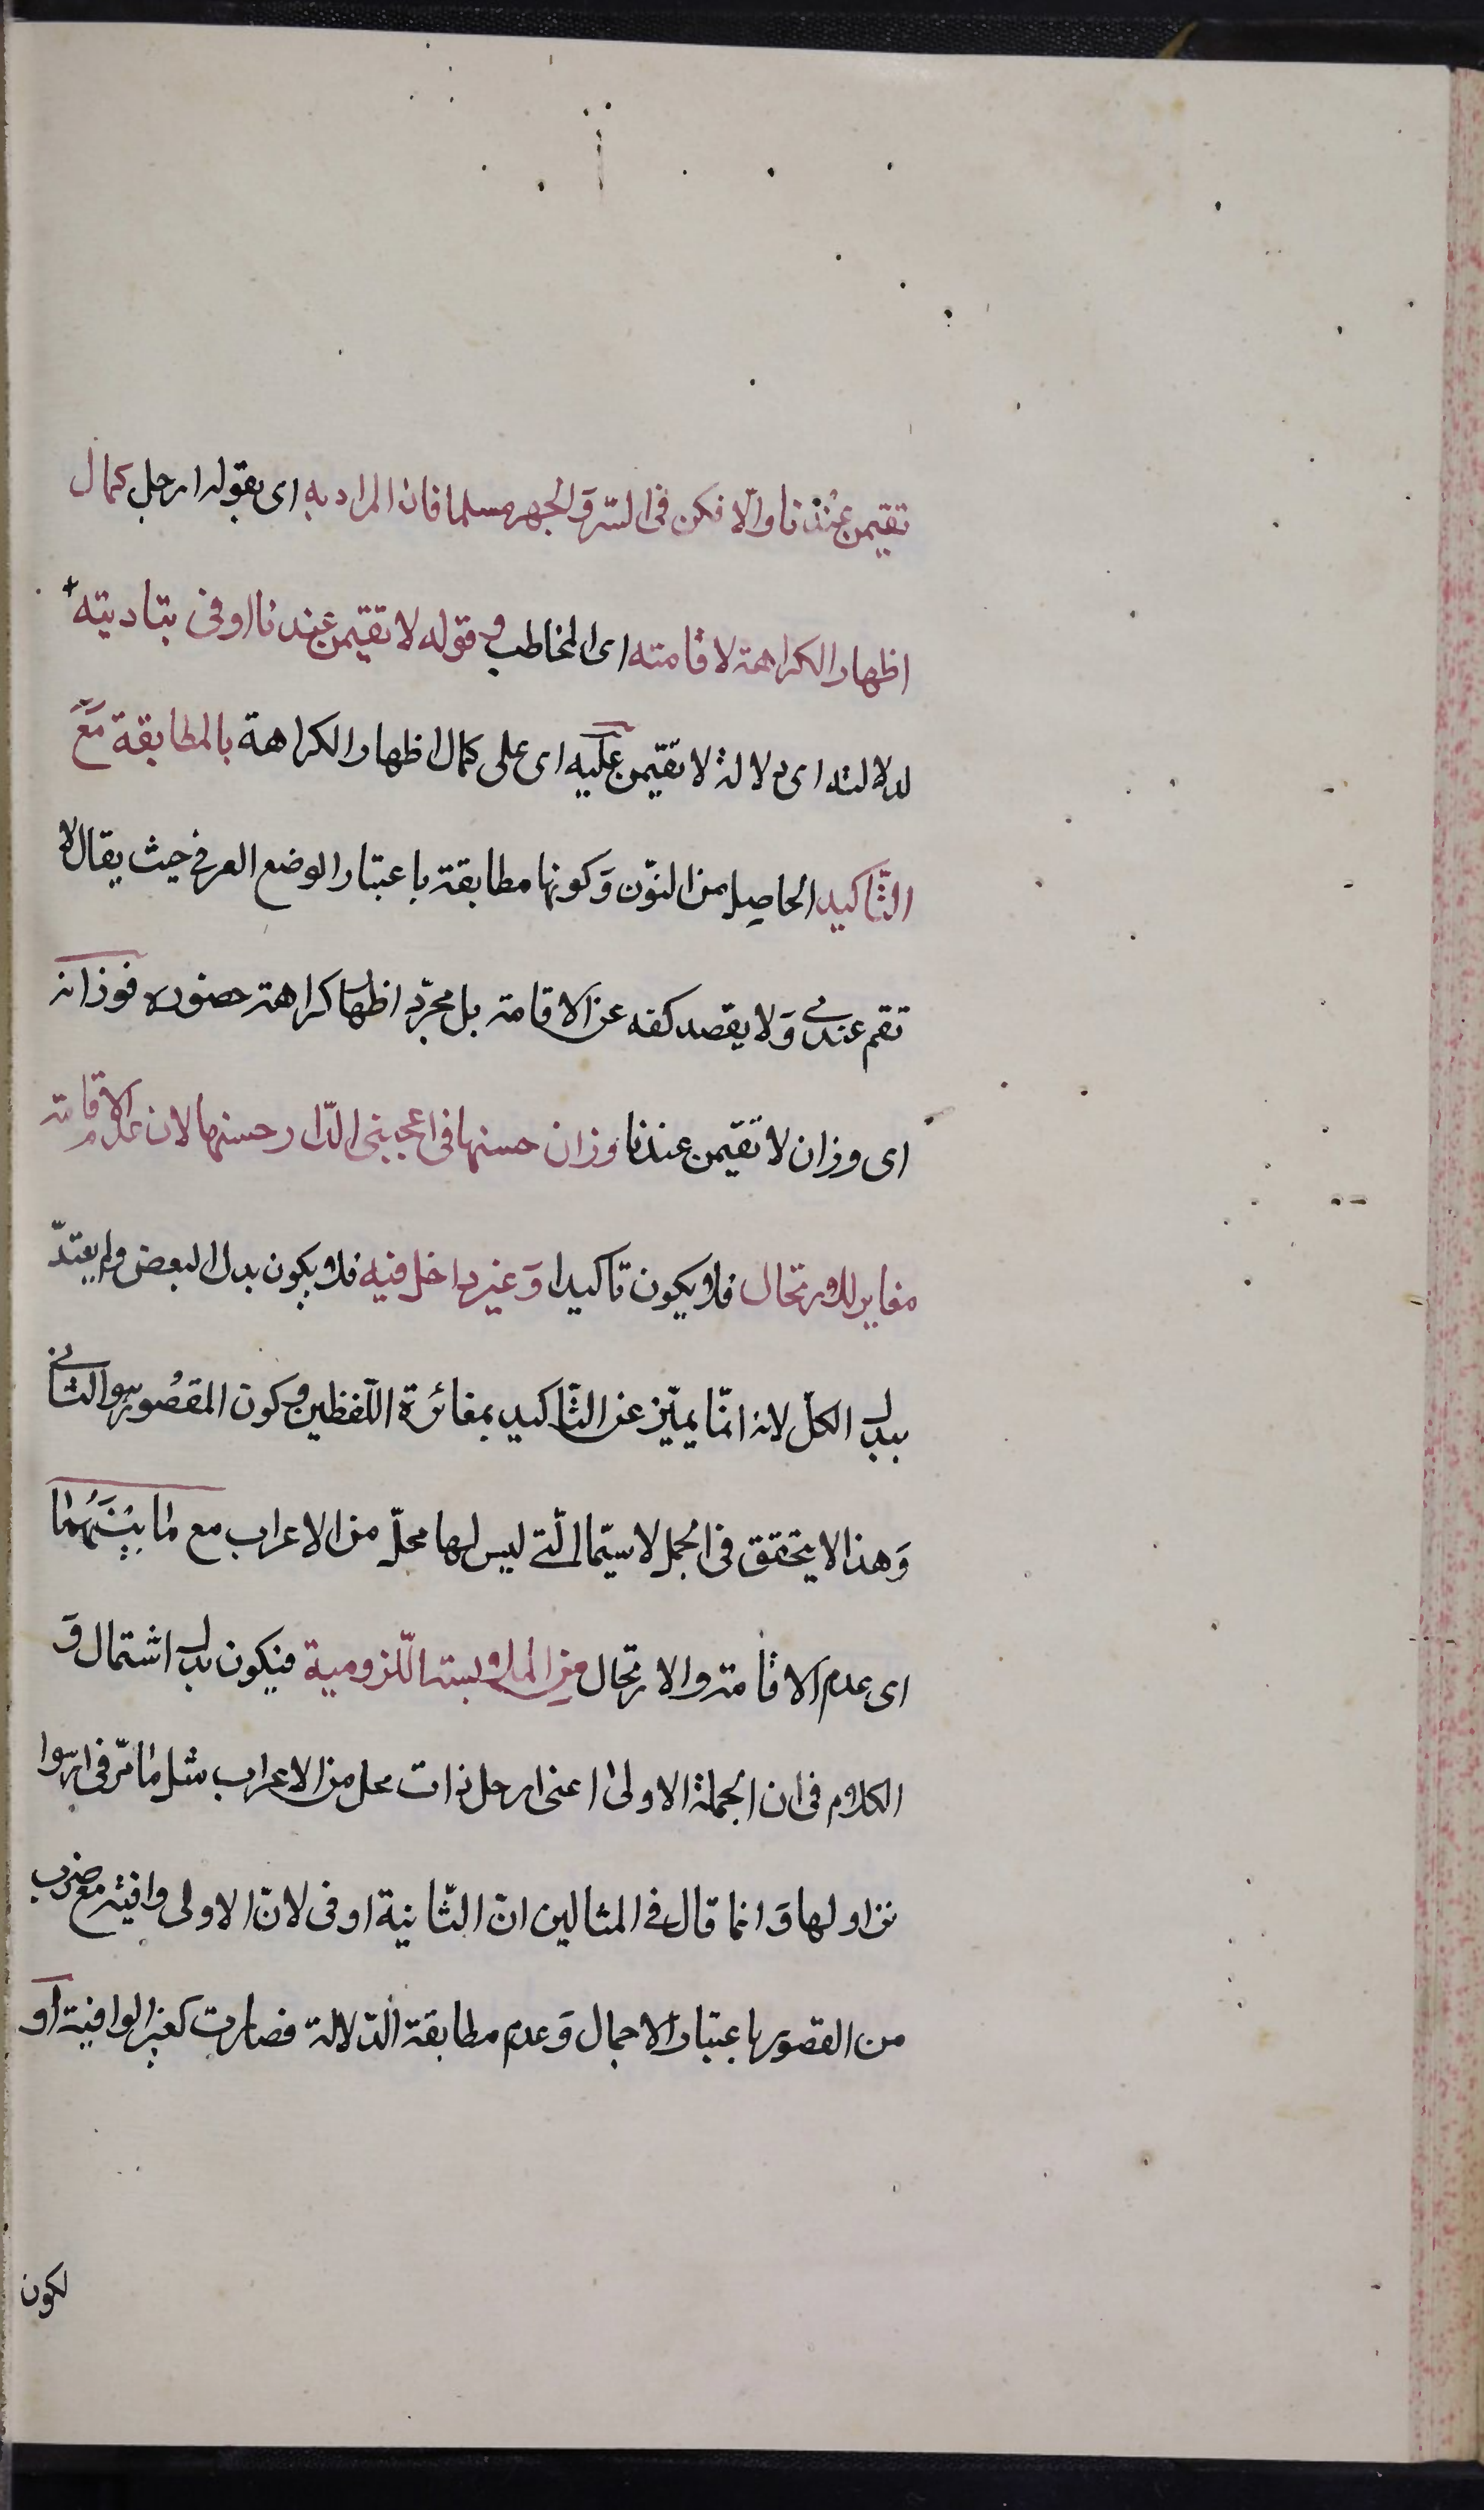 تقيمن عندنا والّا فكن فى السّر وَالجهر مسلما فان المراد به اى بقوله ارحل كمال
اظهار الكراهة لاقامته اى المخاطب وقوله لا تقيمن عندنا اوفى بتاديته
لدلالته اى دلالة لا تقيّمن عليه اى على كمال اظهار الكراهة بالمطابقة مَعَ
التّاكيد الحاصِل من النوّن وَكونها مطابقة باعتبار الوضع العرفى حيث يقال لا
تقم عندى وَلا يقصد كفه عن الاقامة بل مجرّد اظهار كراهة حضوره فوزانه
اى وزان لا تقيّمن عندنا وزان حسنها فى اعجبنى الدّار حسنها لان عدم الاقامة
مغاير للارتحال فلا يكون تاكيدا وَغير داخل فيه فلا يكون بدل البعض ولم يعتدّ
ببدل الكلّ لانه انّما يميّز عن التّاكيد بمغائرة اللّفظين وكون المقصُور هو الثانى
وَهذا لا يتحقق فى الجمل لا سيّما الّتى ليس لها محلّ من الاعراب مع مَا بَيْنَهُمَا
اى عدم الاقامة والارتحال مِن الملابسة اللّزومية فيكون بدل اشتمال وَ
الكلام فى ان الجملة الاولىٰ اعنى ارحل ذات محل من الاعراب مثل مَا مّر فى ارسوا
نزاولها وَانما قال فى المثالين انّ الثّانية اوفى لانّ الاولى وافية مع ضرب
من القصور باعتبار الاجمال وَعدم مطابقة الدّلالة فصارت كغير الوافية اَو
لكون